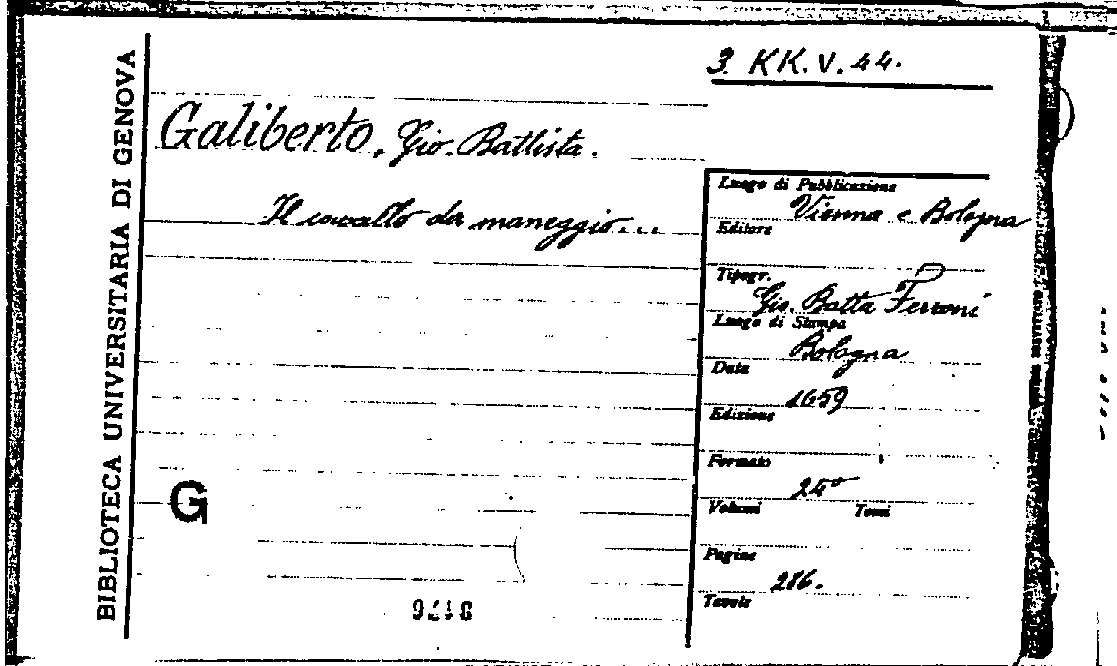 BIBLIOTECA UNIVERSITARIA DI GENOVA
3 KK. V. 44.
Galiberto, Gio. Battista.
Il cavallo da maneggio...
Luogo di Pubblicazione
Vienna e Bologna
Editore
Tipogr.
Gio. Batta Ferroni
Luogo di Stampa
Bologna
Data
1659
Edizione
Formato
24°
Volumi Tomi
Pagine
216.
Tavole
G